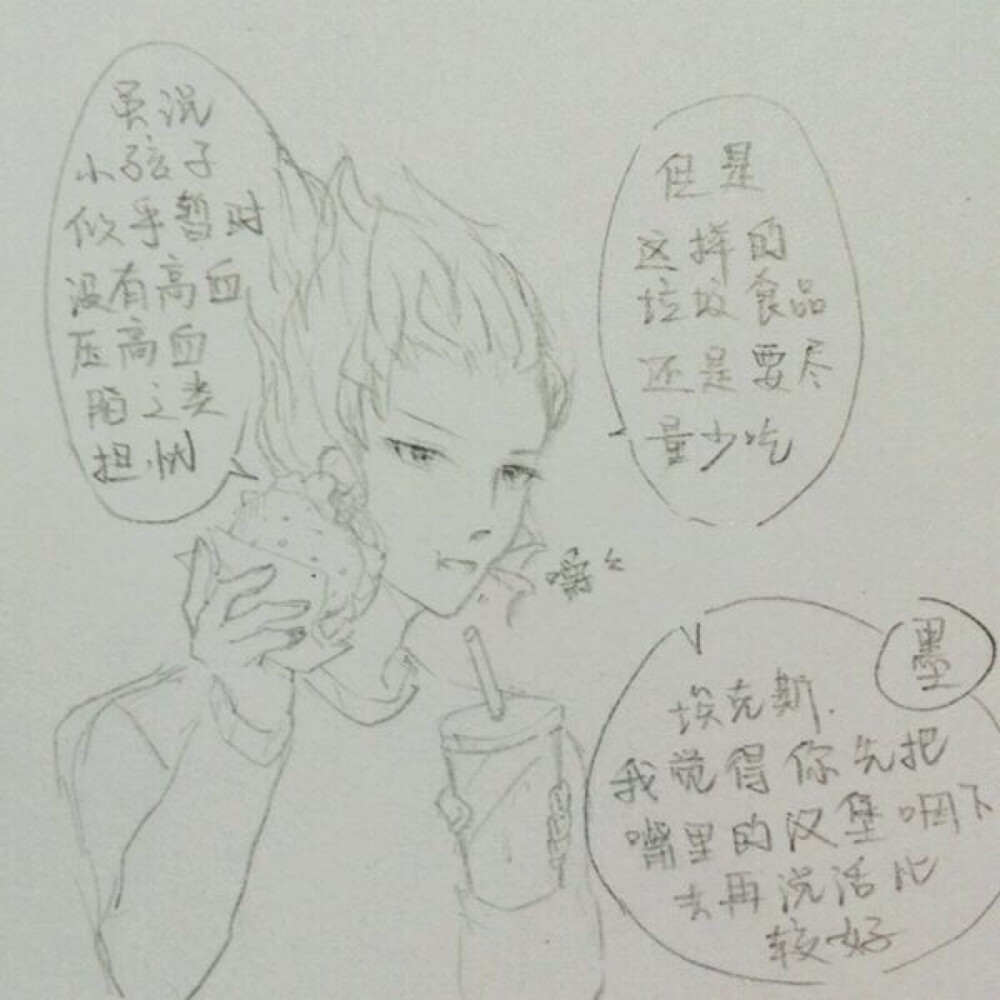 虽说
小孩子
似乎暂时
没有高血
压高血
脂之类
担忧
但是
这样的
垃圾食品
还是要尽
量少吃
嚼
墨
埃克斯.
我觉得你先把
嘴里的汉堡咽下
去再说话比
较好